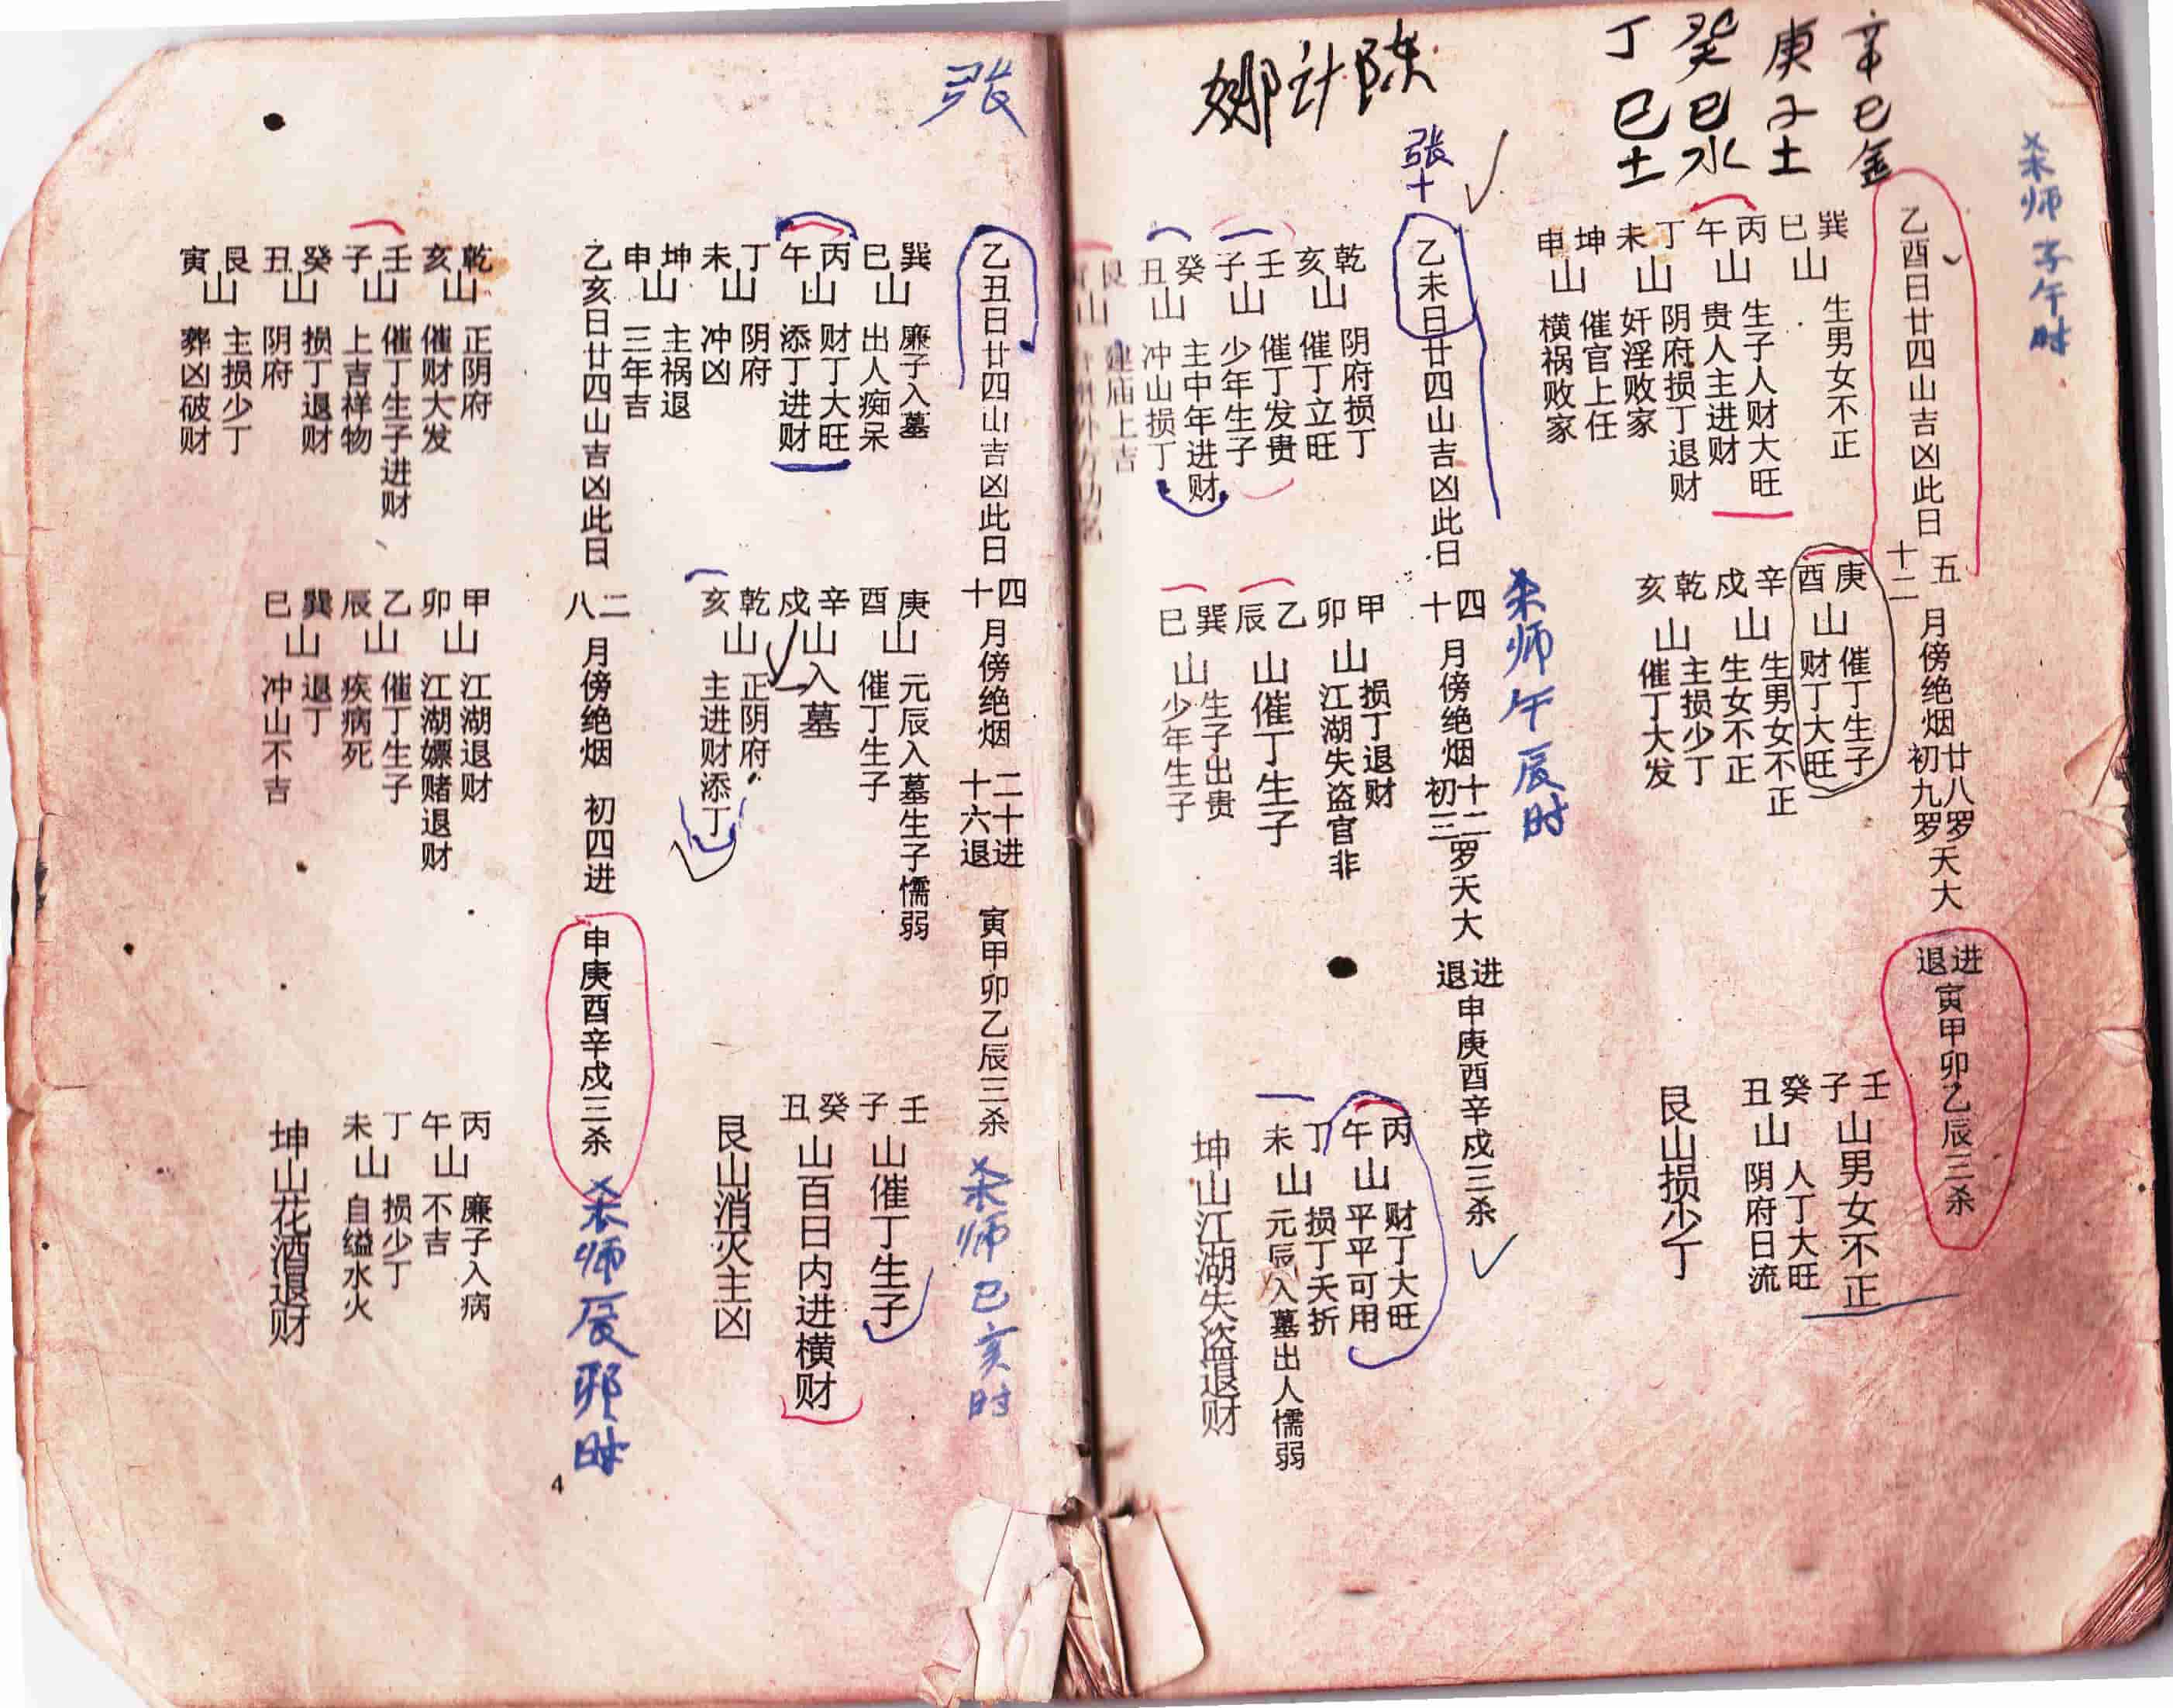 杀师子午时
辛巳金
庚子土
癸巳水
丁巳土
陈计娜
乙酉日廿四山吉凶此日
五十二
月傍绝烟
廿八罗
初九罗
天大
进退
寅甲卯乙辰三杀
巽巳山 生男女不正
丙午山 生子人财大旺 贵人主进财
丁未山 阴府损丁退财 奸淫败家
坤申山 催官上任 横祸败家
庚酉山 催丁生子 财丁大旺
辛戌山 生男女不正 生女不正
乾亥山 主损少丁 催丁大发
壬子山男女不正
癸丑山 人丁大旺 阴府日流
艮山损少丁
张十
杀师午辰时
乙未日廿四山吉凶此日
四十
月傍绝烟
十二
初三
罗天大
进退
申庚酉辛戌三杀
乾亥山 阴府损丁 催丁立旺
壬子山 催丁发贵 少年生子
癸丑山 主中年进财 冲山损丁
艮 山 建庙上吉
甲卯山 损丁退财 江湖失盗官非
乙辰山催丁生子
巽巳山 生子出贵 少年生子
丙午山 财丁大旺 平平可用
丁未山 损丁夭折 元辰入墓出人懦弱
坤山江湖失盗退财
张
乙丑日廿四山吉凶此日
四十
月傍绝烟
二十进
十六退
寅甲卯乙辰三杀
杀师巳亥时
巽巳山 廉子入墓 出人痴呆
丙午山 财丁大旺 添丁进财
丁未山 阴府 冲凶
坤申山 主祸退 三年吉
庚酉山 元辰入墓生子懦弱 催丁生子
辛戌山 入墓
乾亥山 正阴府 主进财添丁
壬子山催丁生子
癸丑山百日内进横财
艮山消灭主凶
乙亥日廿四山吉凶此日
二八
月傍绝烟
初四进
申庚酉辛戌三杀
杀师辰卯时
乾亥山 正阴府 催财大发
壬子山 催丁生子进财 上吉祥物
癸丑山 损丁退财 阴府
艮寅山 主损少丁 葬凶破财
甲卯山 江湖退财 江湖嫖赌退财
乙辰山 催丁生子 疾病死
巽巳山 退丁 冲山不吉
丙午山 廉子入病 不吉
丁未山 损少丁 自缢水火
坤山花酒退财
4